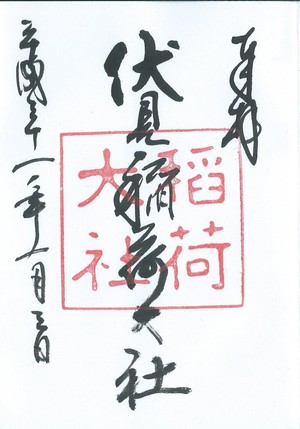 奉拝
伏見稲荷大社
稲荷
大社
平成三十一年一月三日